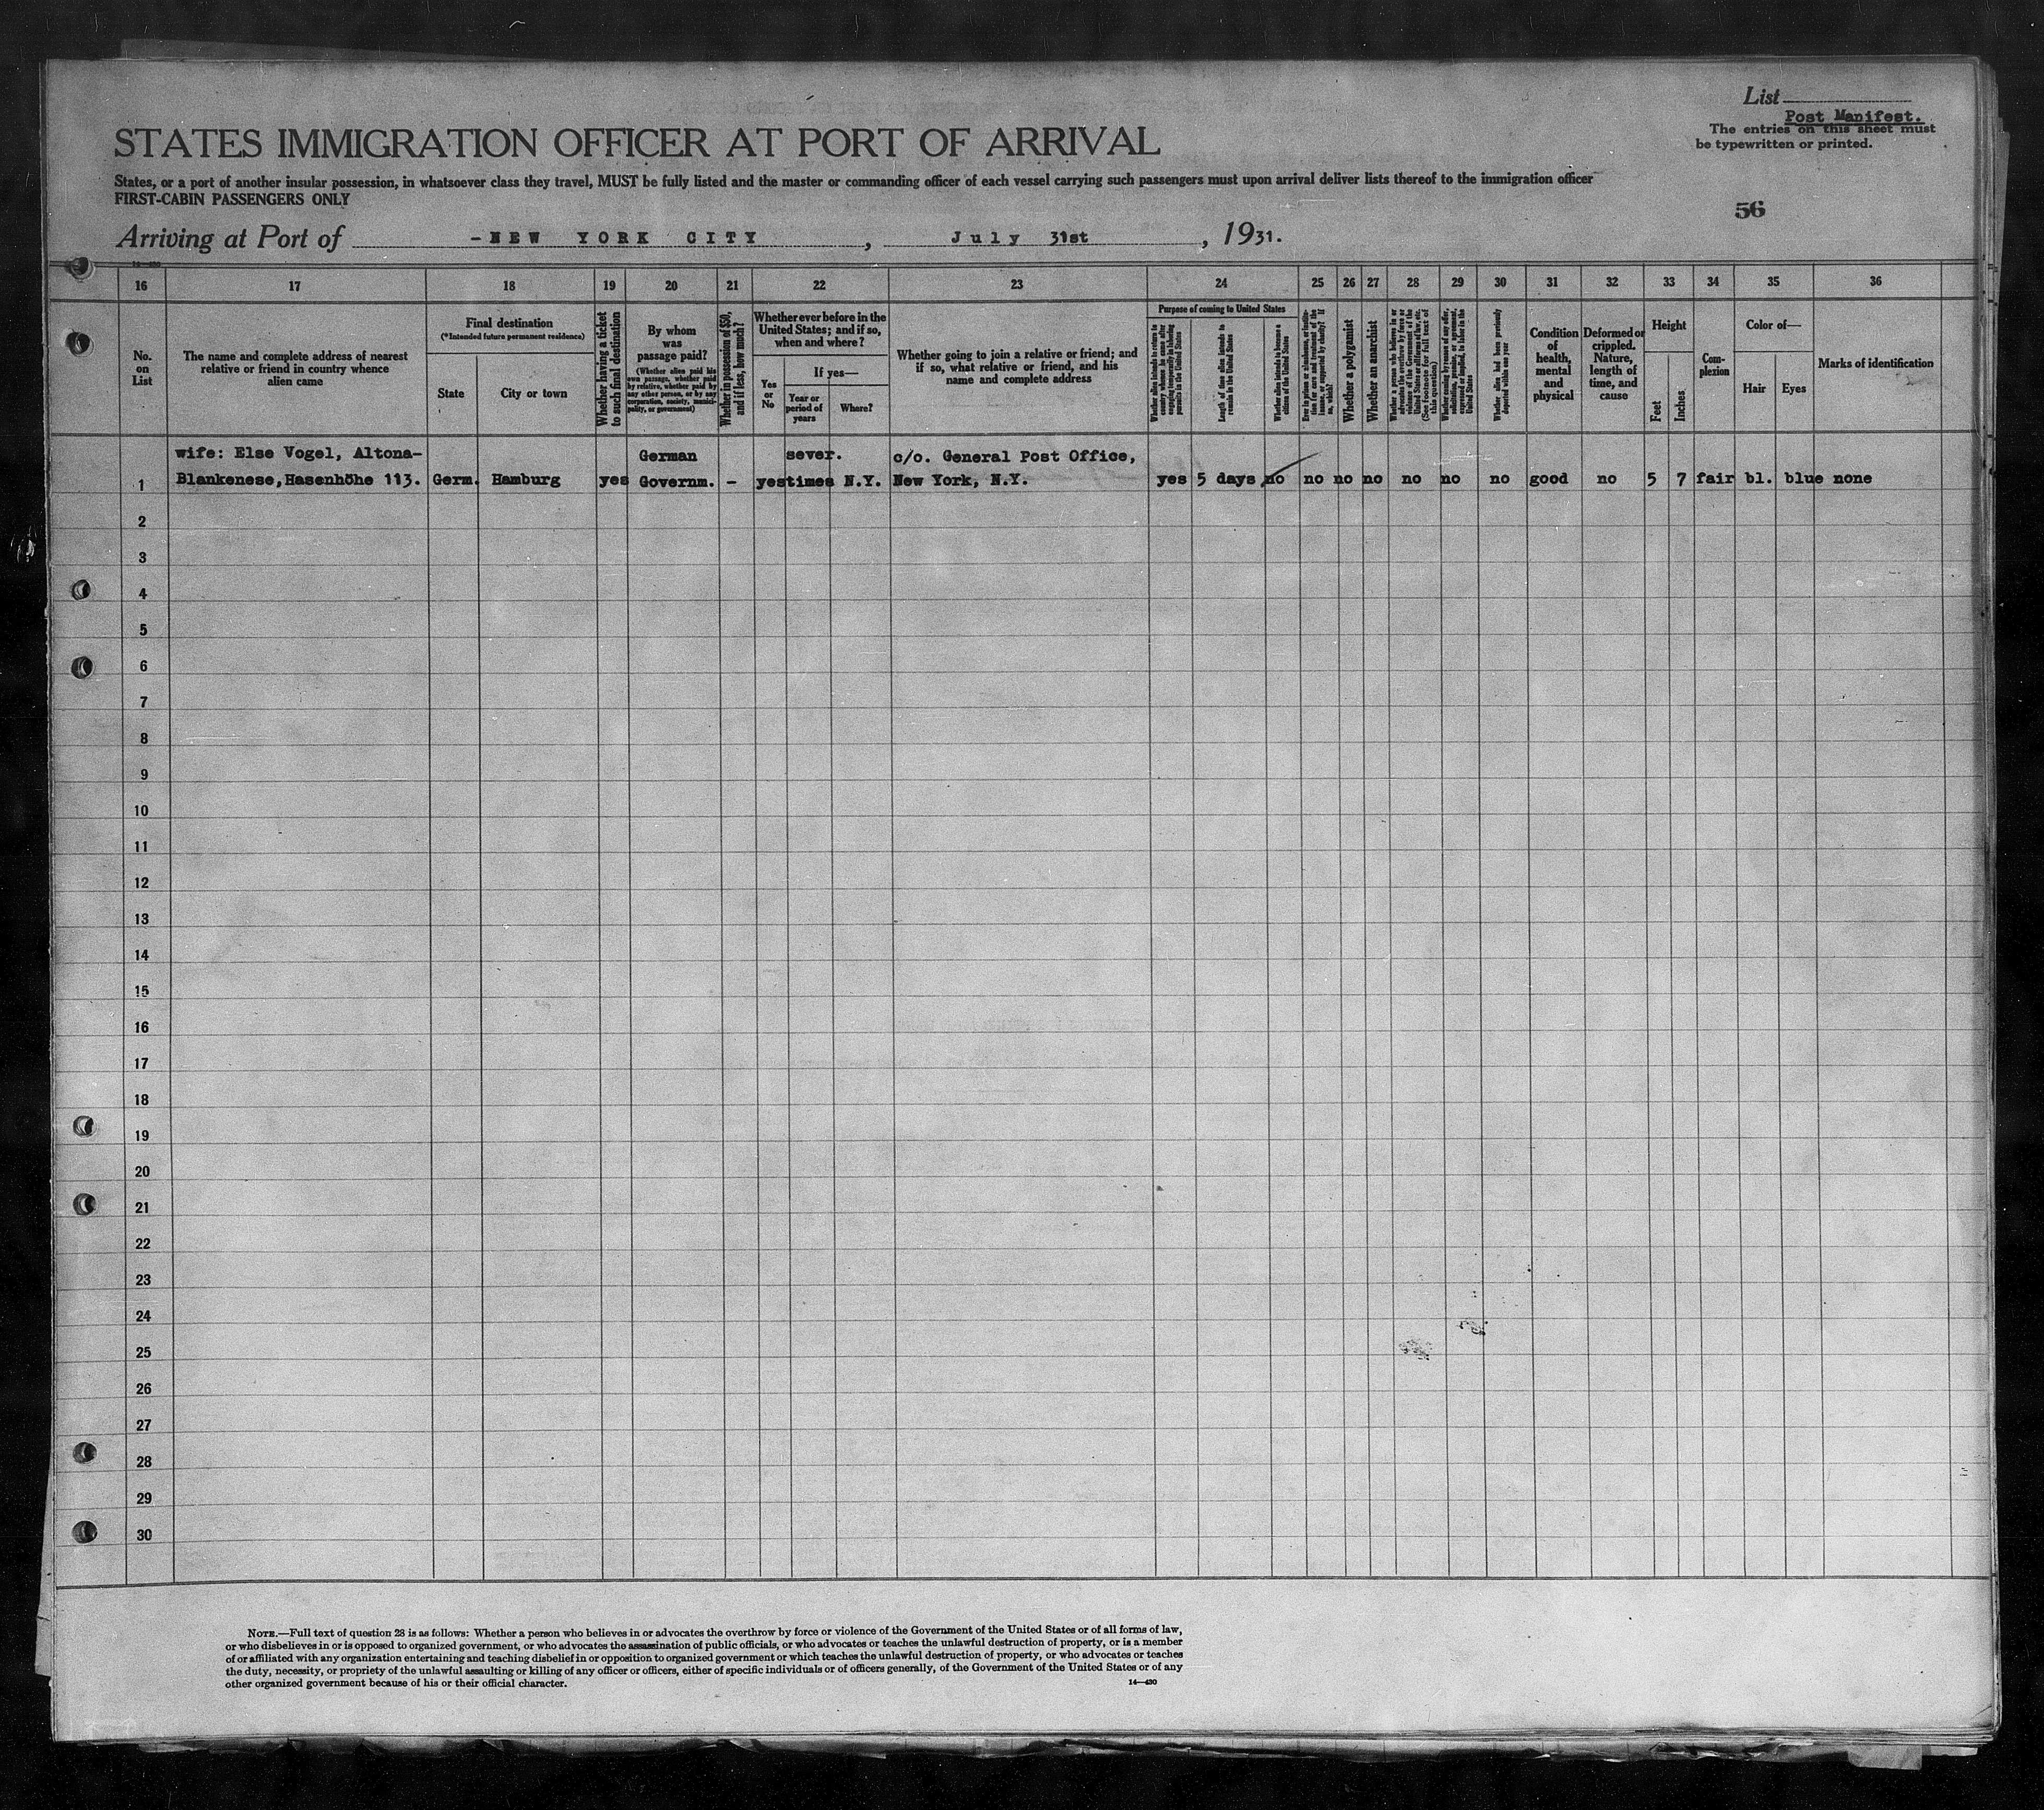 List
Post Manifest.
The entries on this sheet must
be typewritten or printed.
STATES IMMIGRATION OFFICER AT PORT OF ARRIVAL
States, or a port of another insular possession, in whatsoever class they travel, MUST be fully listed and the master or commanding officer of each vessel carrying such passengers must upon arrival deliver lists thereof to the immigration officer
FIRST-CABIN PASSENGERS ONLY
56
Arriving at Port of -NEW YORK CITY, July 31st, 1931.
16 17 18 19 20 21 22 23 24 25 26 27 28 29 30 31 32 33 34 35 36
No.
on
List
The name and complete address of nearest
relative or friend in country whence
alien came
Final destination
(*Intended future permanent residence)
State
City or town
Whether having a ticket
to such final destination
By whom
was
passage paid?
(Whether alien paid his
own passage, whether paid
by relative, whether paid by
any other person, or by any
corporation, society, munici-
pality, or government)
Whether in possession of $50,
and if less, how much?
Whether ever before in the
United States; and if so,
when and where?
Yes
or
No
If yes—
Year or
period of
years
Where?
Whether going to join a relative or friend; and
if so, what relative or friend, and his
name and complete address
Purpose of coming to United States
Whether alien intends to return to
country whence he came after
engaging temporarily in laboring
pursuits in the United States
Length of time alien intends to
remain in the United States
Whether alien intends to become a
citizen of the United States
Ever in prison or almshouse, or institu-
tion for care and treatment of the
insane, or supported by charity? If
so, which?
Whether a polygamist
Whether an anarchist
Whether a person who believes in or
advocates the overthrow by force or
violence of the Government of the
United States or all forms of law, etc.
(See footnote for full text of
this question)
Whether coming by reason of any offer,
solicitation, promise, or agreement,
expressed or implied, to labor in the
United States
Whether alien had been previously
deported within one year
Condition
of
health,
mental
and
physical
Deformed or
crippled.
Nature,
length of
time, and
cause
Height
Feet
Inches
Com-
plexion
Color of—
Hair
Eyes
Marks of identification
wife: Else Vogel, Altona- German sever. c/o. General Post Office,
1 Blankenese,Hasenhöhe 113. Germ. Hamburg yes Governm. - yes times N.Y. New York, N.Y. yes 5 days no no no no no no no good no 5 7 fair bl. blue none
2
3
4
5
6
7
8
9
10
11
12
13
14
15
16
17
18
19
20
21
22
23
24
25
26
27
28
29
30
NOTE.—Full text of question 28 is as follows: Whether a person who believes in or advocates the overthrow by force or violence of the Government of the United States or of all forms of law,
or who disbelieves in or is opposed to organized government, or who advocates the assassination of public officials, or who advocates or teaches the unlawful destruction of property, or is a member
of or affiliated with any organization entertaining and teaching disbelief in or opposition to organized government or which teaches the unlawful destruction of property, or who advocates or teaches
the duty, necessity, or propriety of the unlawful assaulting or killing of any officer or officers, either of specific individuals or of officers generally, of the Government of the United States or of any
other organized government because of his or their official character.
14—430